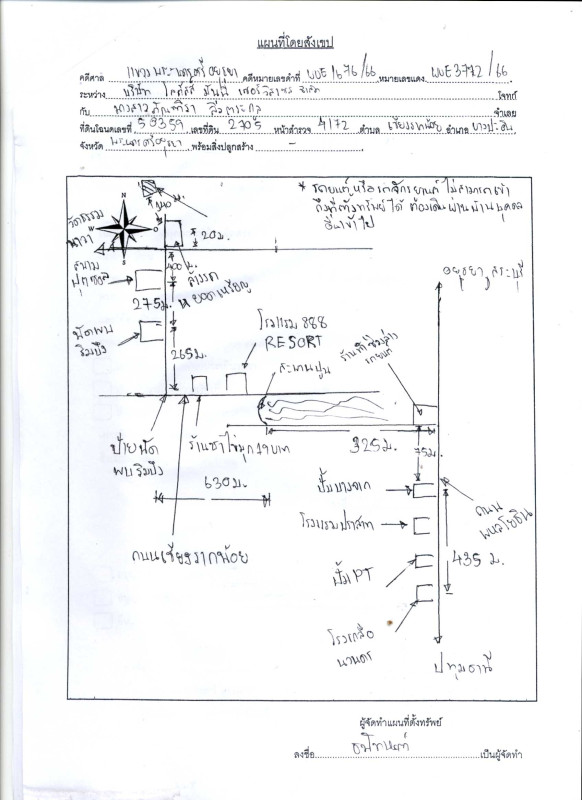 แผนที่โดยสังเขป
คดีศาล แขวงพระนครศรีอยุธยา คดีหมายเลขดำที่ ผบE1676/66 หมายเลขแดง ผบE3772/66
ระหว่าง บริษัท มันนี่ เซอร์วิส จำกัด โจทก์
กับ นางสาว จำเลย
ที่ดินโฉนดเลขที่ 59359 เลขที่ดิน 2705 หน้าสำรวจ 4172 ตำบล เชียงรากน้อย อำเภอ บางปะอิน
จังหวัด พระนครศรีอยุธยา พร้อมสิ่งปลูกสร้าง -
* รถยนต์หรือรถจักรยานต์ ไม่สามารถเข้า
ถึงที่ตั้งทรัพย์ได้ ต้องเดินผ่านบ้านบุคคล
อื่นเข้าไป
140 ม.
N
W
O
S
20 ม.
400 ม.
สนาม
ฟุตซอล
275 ม.
ล้างรถ
หยอดเหรียญ
นัดพบ
ริมบึง
265 ม.
โรงแรม 888
RESORT
สะพานปูน
อยุธยา, สระบุรี
ป้ายนัด
พบริมบึง
ร้านชาไข่มุก 19 บาท
325 ม.
75 ม.
630 ม.
ปั๊มบางจาก
ถนน
พหลโยธิน
ถนนเชียงรากน้อย
โรงแรมปราสาท
ปั๊ม PT
435 ม.
โรงเกลือ
นวนคร
ปทุมธานี
ผู้จัดทำแผนที่ตั้งทรัพย์
ลงชื่อ เป็นผู้จัดทำ